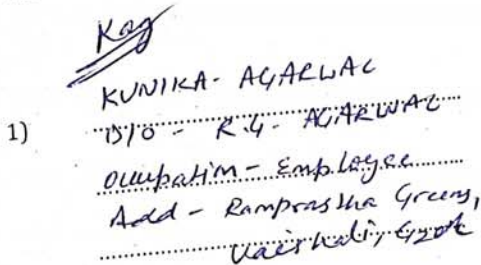 KUNIKA- AGARWAL
1) D/O - R.G. AGARWAL
Occupation - Employee
Add - Ramprastha Greens,
Vaishali,